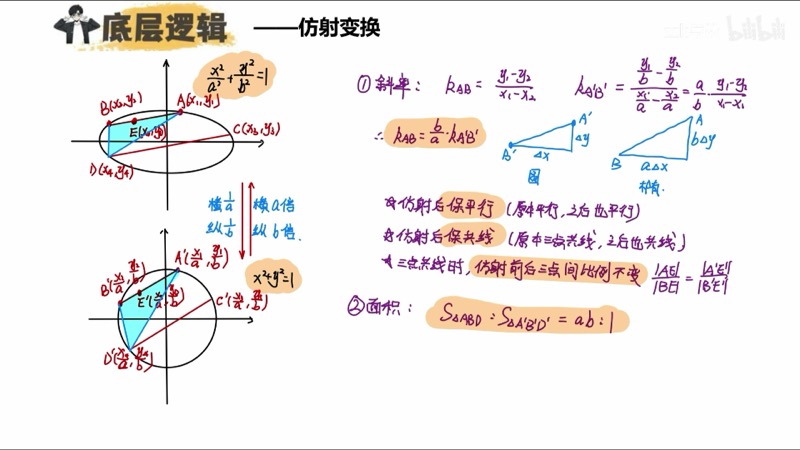 底层逻辑 ——仿射变换
bilibili
x²/a²+y²/b²=1
B(x₂,y₂) A(x₁,y₁)
E(x₀,y₀)
C(x₃,y₃)
D(x₄,y₄)
横1/a 横a倍
纵1/b 纵b倍
x²+y²=1
A'(x₁/a, y₁/b)
B'(x₂/a, y₂/b)
E'(x₀/a, y₀/b) C'(x₃/a, y₃/b)
D'(x₄/a, y₄/b)
①斜率: k_AB = (y₁-y₂)/(x₁-x₂) k_A'B' = (y₁/b - y₂/b)/(x₁/a - x₂/a) = a/b · (y₁-y₂)/(x₁-x₂)
∴ k_AB = b/a · k_A'B'
A' B' Δx Δy 圆
A B aΔx bΔy 椭圆
☆仿射后保平行 (原本平行,之后也平行)
☆仿射后保共线 (原本三点共线,之后也共线)
★三点共线时,仿射前后三点间比例不变 |AE|/|BE| = |A'E'|/|B'E'|
②面积: S△ABD : S△A'B'D' = ab : 1